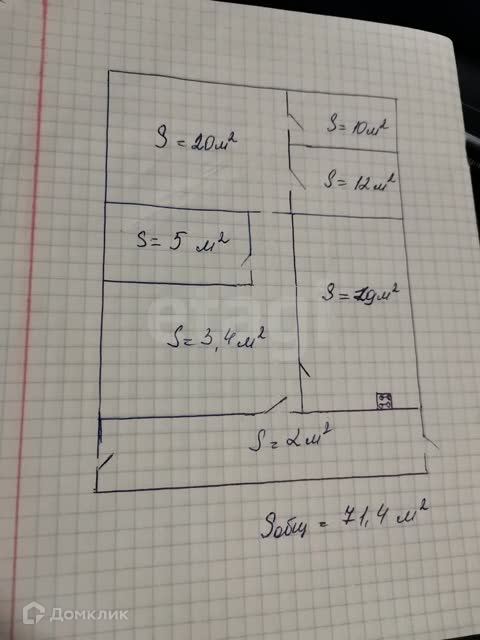 S = 20 м²
S = 10 м²
S = 12 м²
S = 5 м²
S = 19 м²
S = 3,4 м²
S = 2 м²
Sобщ = 71,4 м²
Домклик